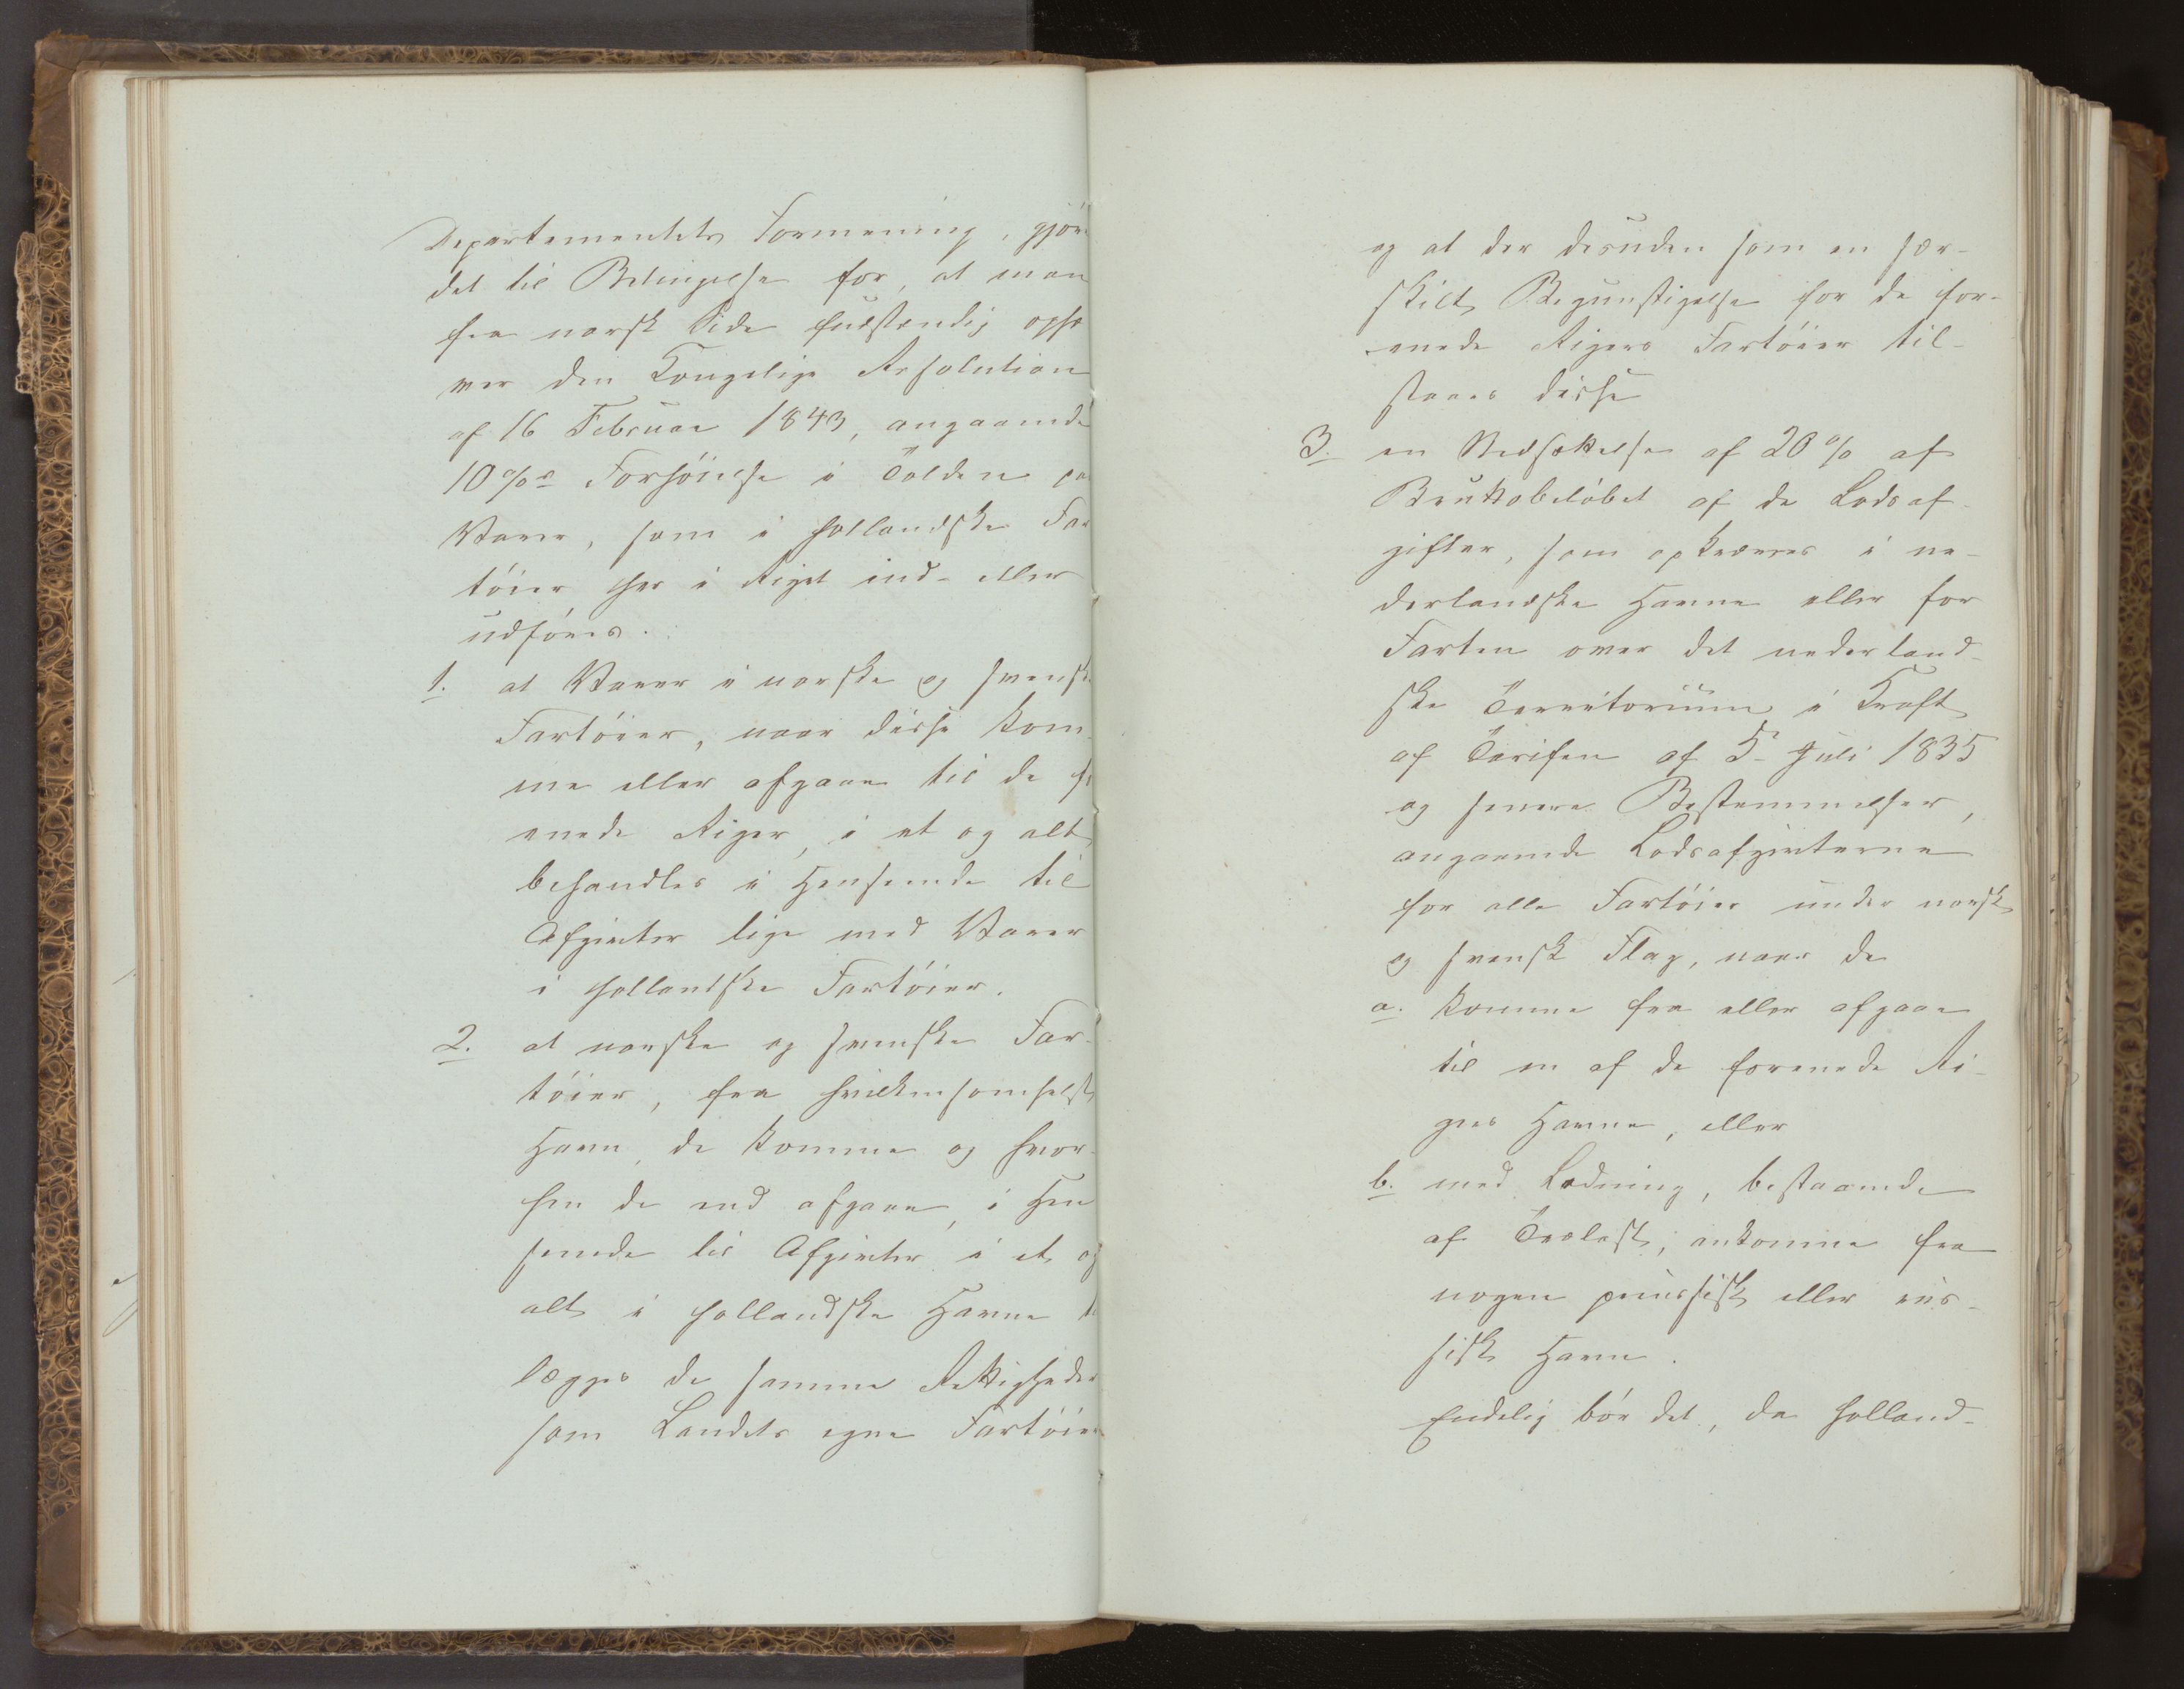 Departementets Formening, gjøre
det til Betingelse for, at man
fra norsk Side fuldstændig ophæ
ver den Kongelige Resolution
af 16 Februar 1843, angaaende
10 %s Forhöielse i Tolden pa
Varer, som i hollandske Far
töier her i Riget ind- eller
udföres.
1. at Varer i norske og svensk
Fartöier, naar disse kom-
me eller afgaae til de f
enede Riger, i et og alt
behandles i Henseende til
Afgivter lige med Varer
i hollandske Fartöier.
2. at norske og svenske Far-
töier, fra hvilkensomhelst
Havn de komme og hvor-
hen de end afgaae, i Hen
seende til Afgivter i et og
alt i hollandske Havne ti
lægges de samme Rettigheder
som Landets egne Fartöier
og at der desuden som en sær-
skilt Begunstigelse for de for-
enede Rigers Fartöier til-
staaes disse
3. en Nedsættelse af 20 % af
Bruttobelöbet af de Lodsaf-
gifter, som opkræves i ne-
derlandske Havne eller for
Farten over det nederland-
ske Territorium i Kraft
af Tarifen af 5 Juli 1835
og senere Bestemmelser,
angaaende Lodsafgivterne
for alle Fartöier under norsk
og svensk Flag, naar de
a. komme fra eller afgaae
til en af de forenede Ri-
gers Havne, eller
b. med Ladning, bestaaende
af Trælast, ankomme fra
nogen preussisk eller rus-
sisk Havn.
Endelig bör det, da holland-